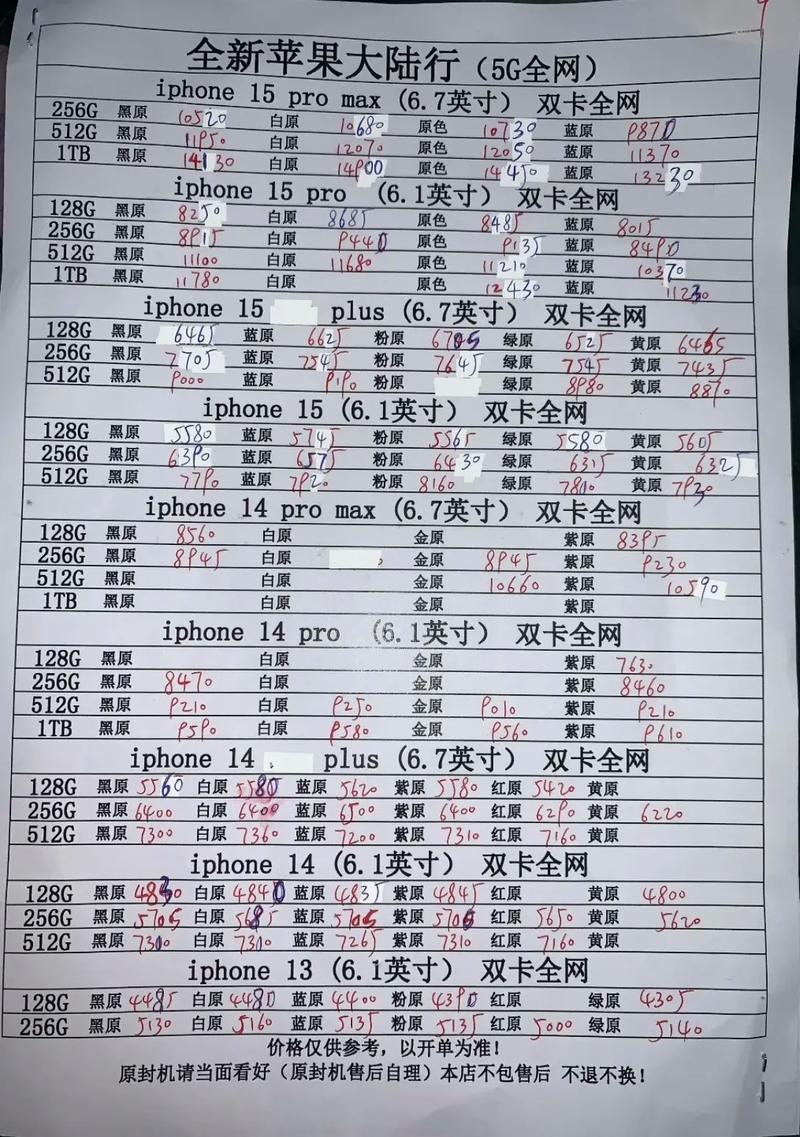 全新苹果大陆行（5G全网）
iphone 15 pro max (6.7英寸） 双卡全网
256G 黑原 10520 白原 10680 原色 10730 蓝原 9870
512G 黑原 11950 白原 12070 原色 12050 蓝原 11370
1TB 黑原 14130 白原 14900 原色 14450 蓝原 13230
iphone 15 pro (6.1英寸） 双卡全网
128G 黑原 8250 白原 8685 原色 8485 蓝原 8015
256G 黑原 8915 白原 9440 原色 9135 蓝原 8490
512G 黑原 11100 白原 11680 原色 11210 蓝原 10370
1TB 黑原 11780 白原 原色 12430 蓝原 11230
iphone 15 plus (6.7英寸） 双卡全网
128G 黑原 6465 蓝原 6625 粉原 6705 绿原 6525 黄原 6465
256G 黑原 7705 蓝原 7545 粉原 7645 绿原 7545 黄原 7435
512G 黑原 9000 蓝原 9190 粉原 绿原 8980 黄原 8870
iphone 15 (6.1英寸） 双卡全网
128G 黑原 5580 蓝原 5745 粉原 5565 绿原 5580 黄原 5605
256G 黑原 6390 蓝原 6575 粉原 6430 绿原 6315 黄原 6325
512G 黑原 7790 蓝原 7920 粉原 8160 绿原 7810 黄原 7930
iphone 14 pro max (6.7英寸） 双卡全网
128G 黑原 8560 白原 金原 紫原 8395
256G 黑原 8945 白原 金原 8945 紫原 9230
512G 黑原 白原 金原 10660 紫原 10590
1TB 黑原 白原 金原 紫原
iphone 14 pro （6.1英寸） 双卡全网
128G 黑原 白原 金原 紫原 7630
256G 黑原 8470 白原 金原 紫原 8460
512G 黑原 9210 白原 9250 金原 9010 紫原 9210
1TB 黑原 9590 白原 9580 金原 9560 紫原 9610
iphone 14 plus (6.7英寸） 双卡全网
128G 黑原 5560 白原 5580 蓝原 5620 紫原 5580 红原 5420 黄原
256G 黑原 6400 白原 6400 蓝原 6500 紫原 6400 红原 6290 黄原 6220
512G 黑原 7300 白原 7360 蓝原 7200 紫原 7310 红原 7160 黄原
iphone 14 (6.1英寸） 双卡全网
128G 黑原 4830 白原 4840 蓝原 4835 紫原 4845 红原 黄原 4800
256G 黑原 5705 白原 5685 蓝原 5705 紫原 5705 红原 5650 黄原 5620
512G 黑原 7300 白原 7310 蓝原 7265 紫原 7310 红原 7160 黄原
iphone 13 (6.1英寸） 双卡全网
128G 黑原 4485 白原 4480 蓝原 4400 粉原 4390 红原 绿原 4305
256G 黑原 5130 白原 5160 蓝原 5135 粉原 5135 红原 5000 绿原 5140
价格仅供参考，以开单为准！
原封机请当面看好（原封机售后自理）本店不包售后 不退不换！